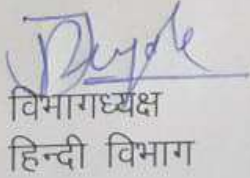 विभागध्यक्ष
हिन्दी विभाग